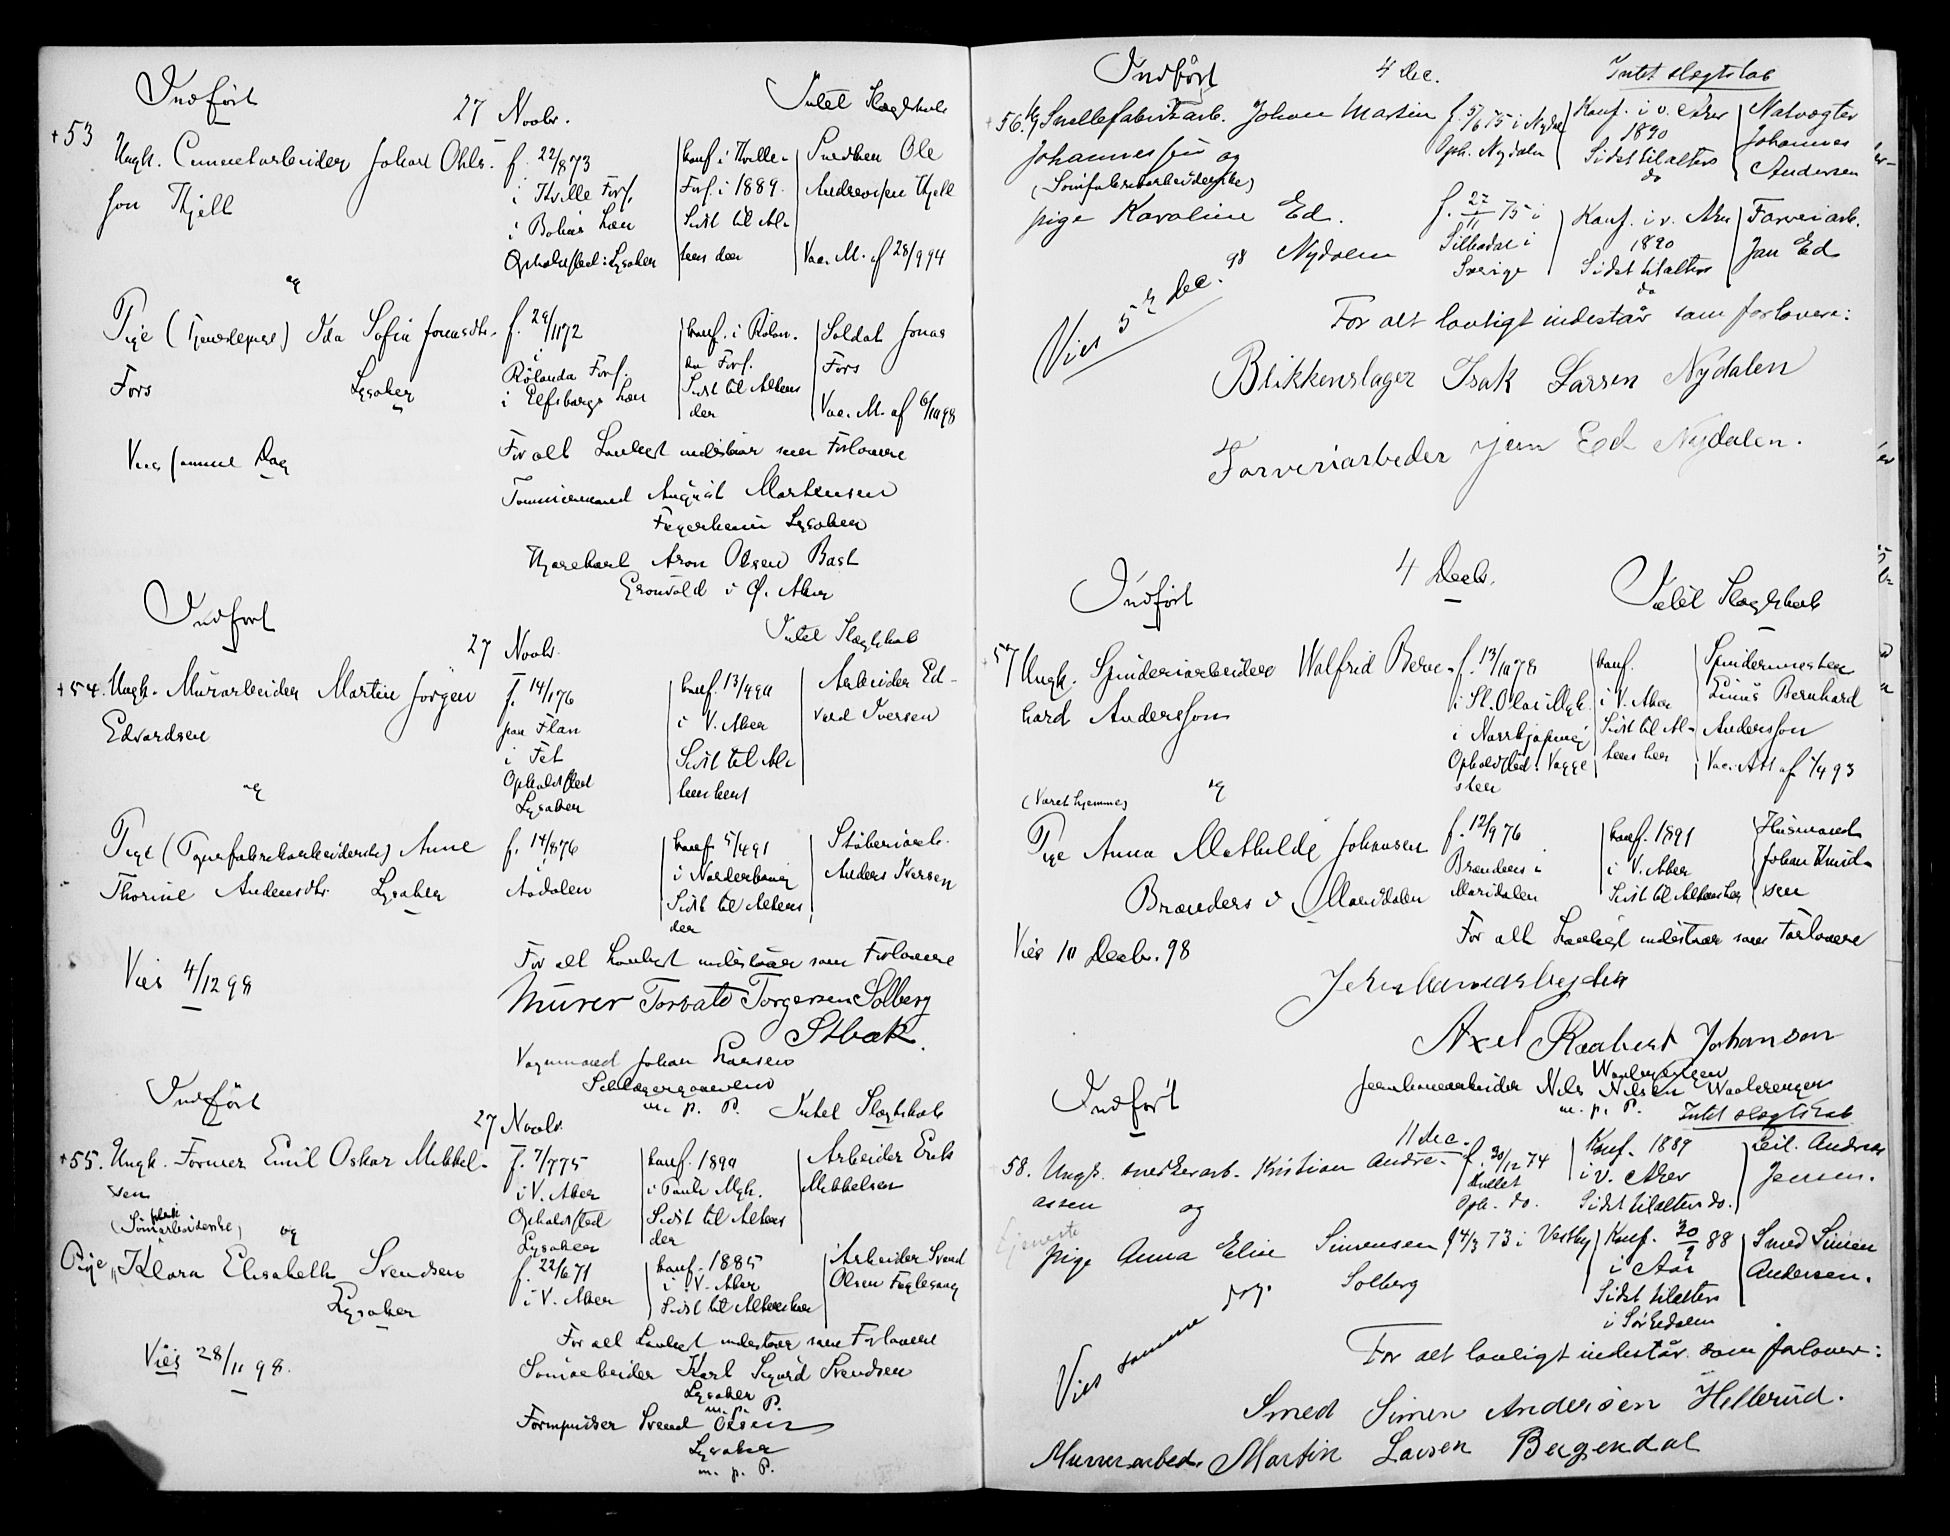 Indført
27 Novbr.
Intet Slægtskab
+53
Ungk. Cementarbeider Johan Ohls-
son Thjell
f. 22/8 73
i Thville Fors.
i Bohus Læn
Opholdssted: Lysaker
konf. i Thville
Fors. i 1889.
Sidst til Al-
ters der
Snedker Ole
Andreassen Thjell
Vac. M. af 28/9 94
og
Pige (Tjenestepige) Ida Sofia Jonasdtr.
Fors Lysaker
f. 29/11 72
i
Rölanda Fors.
i Elfsborgs Læn
konf. i Rölan-
da Fors.
Sidst til Alters
der
Soldat Jonas
Fors
Vac. M. af 6/10 98
Viet samme Dag
For alt Lovligt indestaar som Forlovere
Tømmermand August Mortensen
Fagerheim Lysaker
Kjørekarl Aron Olsen Bast
Grønvold i Ø. Aker
Indført
27 Novbr.
Intet Slægtskab
+54. Ungk. Murarbeider Martin Jørgen
Edvardsen
f. 14/1 76
paa Flan
i Fet
Opholdssted
Lysaker
konf. 13/4 90
i V. Aker
Sidst til Al-
ters her
Arbeider Ed-
vard Iversen
og
Pige (Papirfabrikarbeiderske) Anne
Thorine Andersdtr. Lysaker
f. 14/8 76
i
Aadalen
konf. 5/4 91
i Norderhaug
Sidst til Alters
der
Støberiarb.
Anders Iversen
Viet 4/12 98
For alt Lovligt indestaar som Forlovere
Murer Torvald Torgersen Solberg
Stbæk.
Vognmand Johan Larsen
m. p. P.
Indført
27 Novbr.
Intet Slægtskab
+55. Ungk. Former Emil Oskar Mikkel-
sen
f. 7/7 75
i V. Aker
Opholdssted
Lysaker
konf. 1890
i Pauls Mgh.
Sidst til Alters
der
Arbeider Erik
Mikkelsen
og
Pige Klara Elisabeth Svendsen
Lysaker
f. 22/6 71
i V. Aker
konf. 1885
i V. Aker
Sidst til Alters her
Arbeider Svend
Olsen Fuglesang
Viet 28/11 98.
For alt Lovligt indestaar som Forlovere
Sømarbeider Karl Sigurd Svendsen
Lysaker
m. p. P.
Formpudser Svend Olsen
Lysaker
m. p. P.
Indført
4 Dec.
Intet slægtskab
56. Ug Snellefabrikarb. Johan Martin
Johannessen og
(Sømfabrikarbeiderske)
pige Karoline Ed.
Nydalen
f. 5/6 75 i Nydal
Oph. Nydalen
Konf. i v. Aker
1890
Sidst til alters
do
Natvægter
Johannes
Andersen
f. 27/11 75 i
Silbodal i
Sverige
Konf. i v. Aker
1890
Sidst til alters
do
Farveriarb.
Jan Ed
Viet 5te Dec. 98
For alt lovligt indestår som forlovere:
Blikkenslager Isak Larsen Nydalen
Farveriarbeder Jan Ed Nydalen.
Indført
4 Decbr.
Intet Slægtskab
57 Ungk. Spinderiarbeider Walfrid Bern-
hard Andersson
f. 13/10 78
i St. Olai Mgh.
i Norrkjøping
Opholdssted: Vagge
steen
konf.
i V. Aker
Sidst til Al-
ters her
Spindermester
Linus Bernhard
Andersson
Vac. Att af 1/4 93
og
(Været hjemme)
Pige Anna Mathilde Johansen
Brænders i Maridalen
f. 12/9 76
Brænders i
Maridalen
konf. 1891
i V. Aker
Sidst til Alters her
Husmand
Johan Knud-
sen
Viet 10 Decbr. 98
For alt Lovligt indestaar som Forlovere
Jernbanearbejder
Axel Raabert Johanson
Waalerengen
Jernbanearbeider Nils Nilsen Waalerengen
m. p. P.
Indført
11 dec.
Intet slægtskab
58. Ungk. snedkerarb. Kristian Andre-
assen og
f. 30/12 74
Hullet
Oph. do.
Konf. 1889
i v. Aker
Sidst til alters do.
Leil. Andreas
Jensen.
tjeneste
pige Anna Elise Simensen
Solberg
f 4/3 73 i Vestby
Konf. 30/9 88
i Aas
Sidst til alters
i Sørkedalen
Smed Simen
Andersen.
Viet samme dag.
For alt lovligt indestår som forlover:
Smed Simen Andersen Hellerud.
Murerarbed. Martin Larsen Bagendal